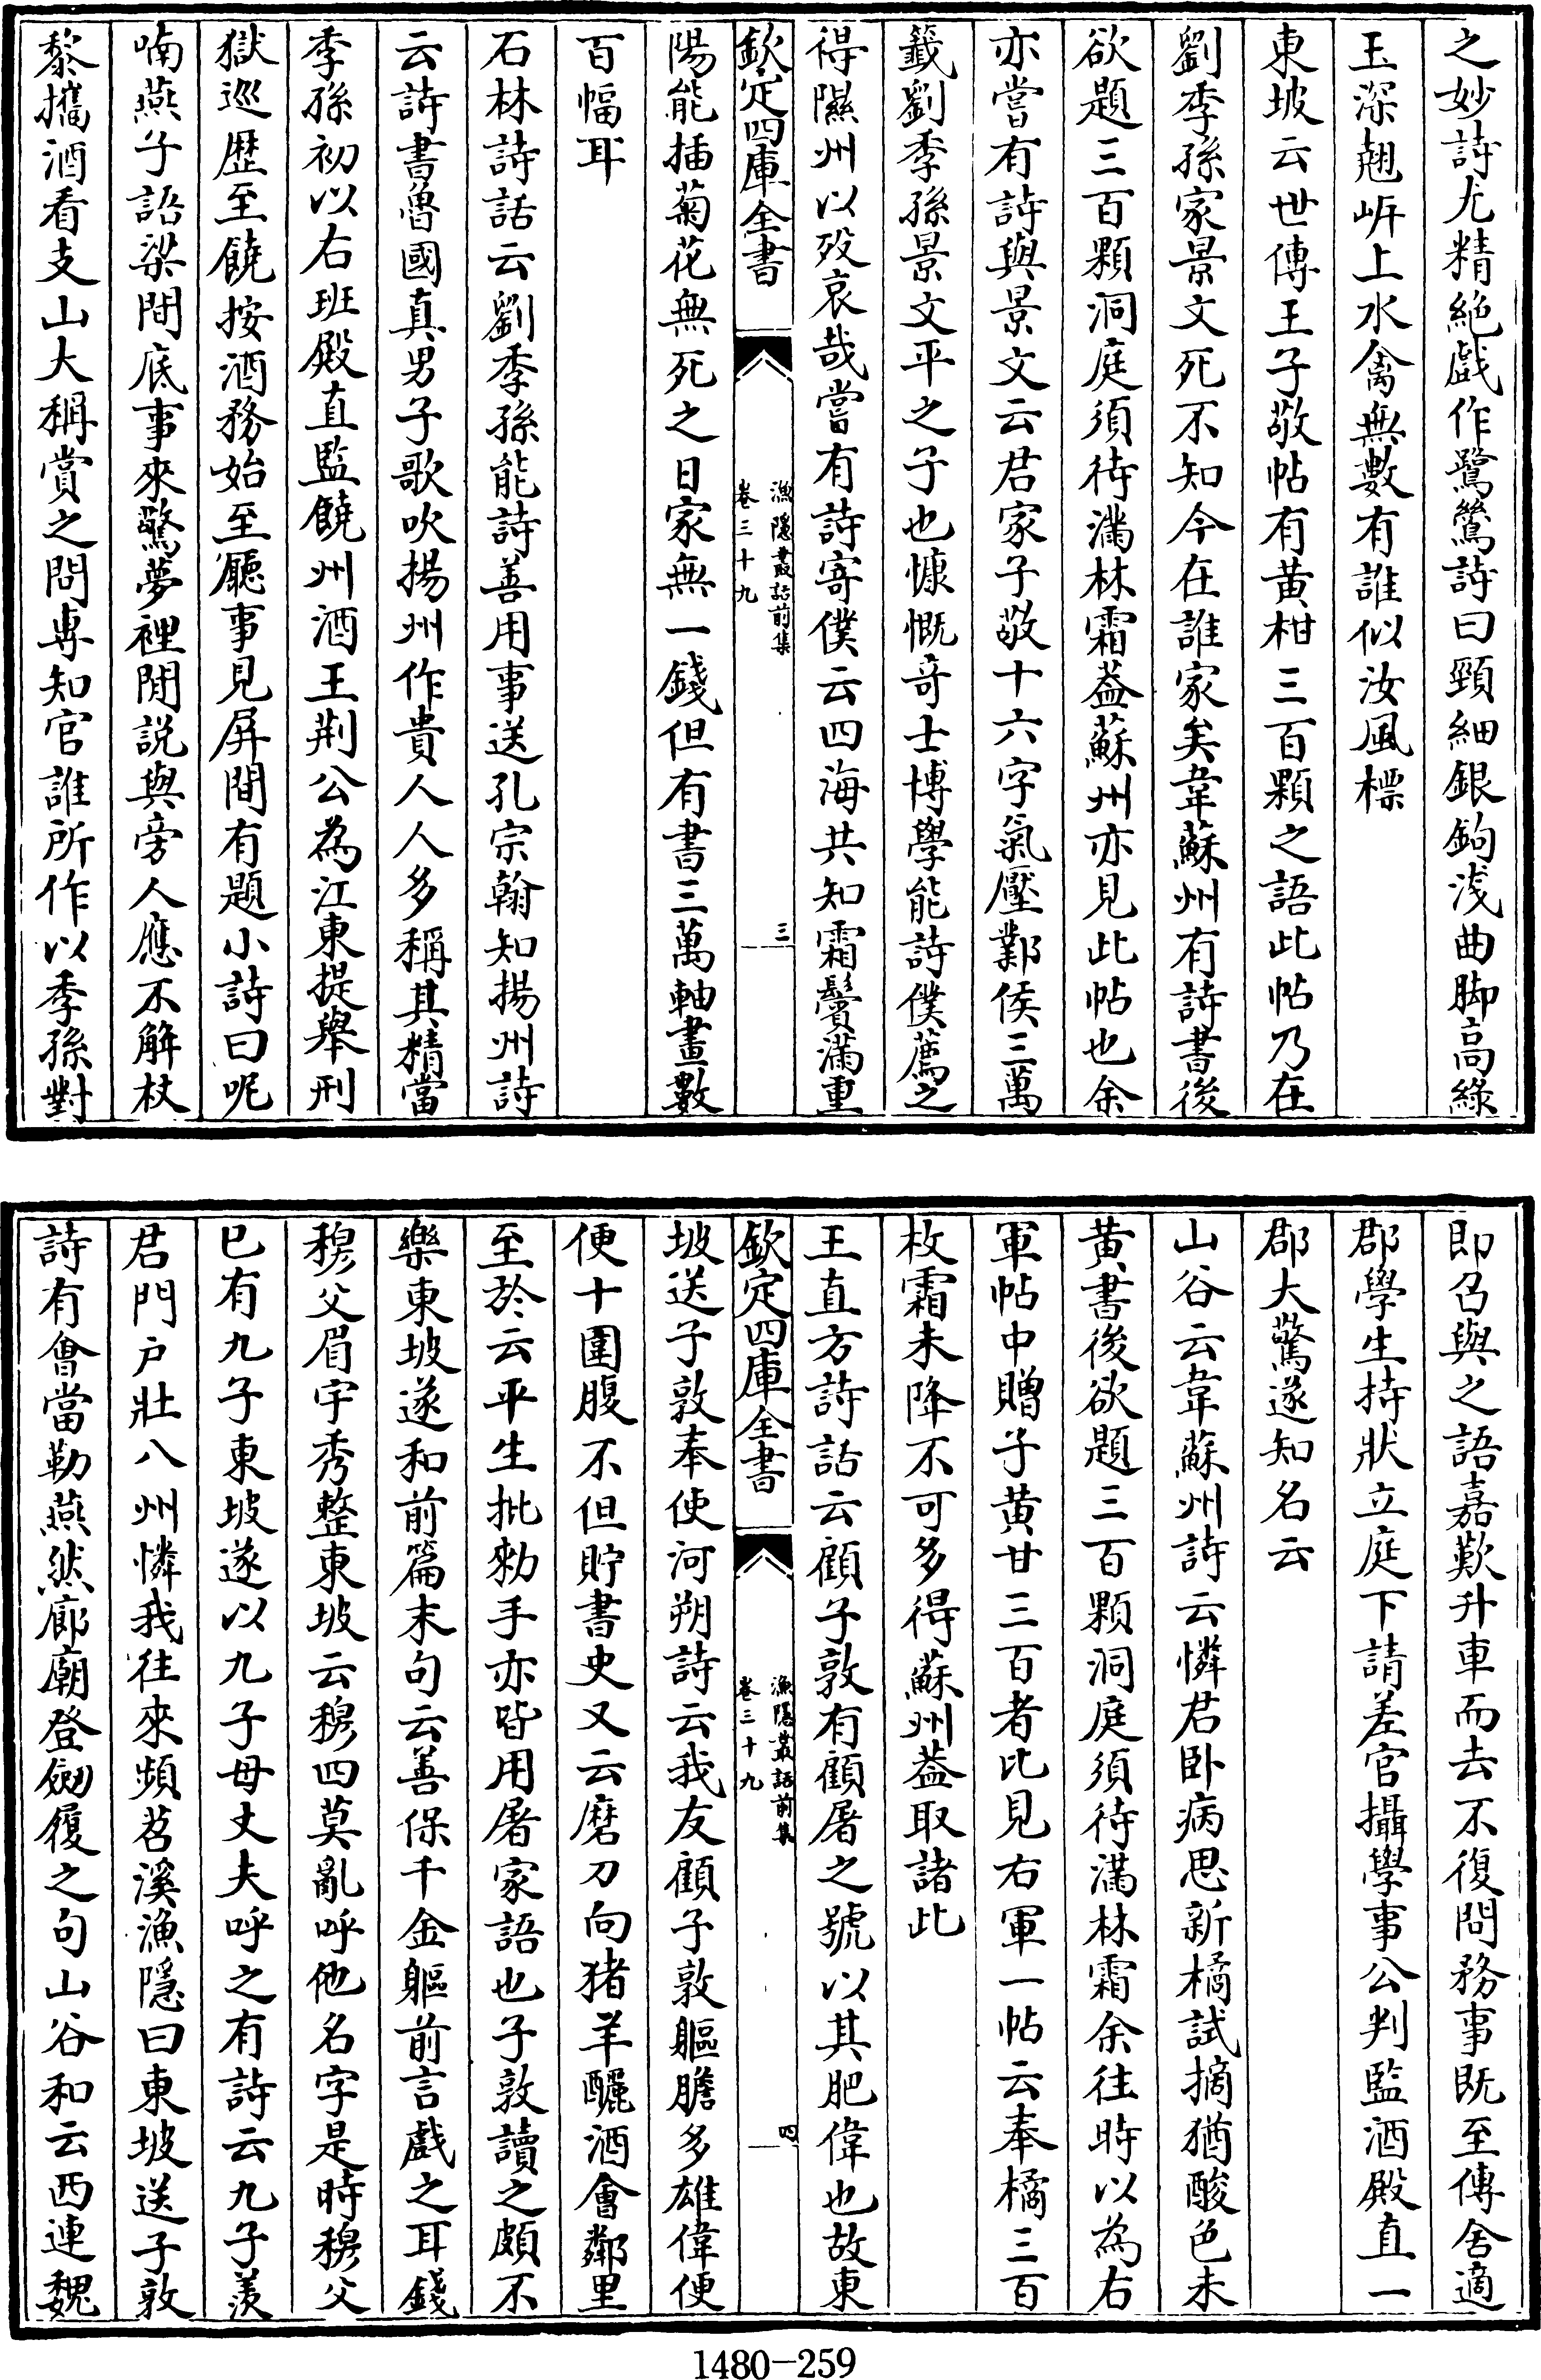 之妙詩尤精絶戯作鷺鷥詩曰頸細銀鉤浅曲脚高綠
玉深翹岍上水禽無數有誰似汝風標
東坡云世傳王子敬帖有黄柑三百顆之語此帖乃在
劉季孫家景文死不知今在誰家矣韋蘇州有詩書後
欲題三百顆洞庭須待滿林霜葢蘇州亦見此帖也余
亦嘗有詩與景文云君家子敬十六字氣壓鄴侯三萬
籖劉季孫景文平之子也慷慨竒士博學能詩僕薦之
得隰州以殁哀哉嘗有詩寄僕云四海共知霜鬢滿重
欽定四庫全書
漁隱叢話前集
卷三十九
三
陽能插菊花無死之日家無一錢但有書三萬軸畫數
百幅耳
石林詩話云劉季孫能詩善用事送孔宗翰知揚州詩
云詩書魯國真男子歌吹揚州作貴人人多稱其精當
季孫初以右班殿直監饒州酒王荆公為江東提舉刑
獄巡歴至饒按酒務始至廳事見屏間有題小詩曰呢
喃燕子語梁間底事來驚夢裡閒説與旁人應不解杖
藜攜酒看支山大稱賞之問專知官誰所作以季孫對
即召與之語嘉歎升車而去不復問務事既至傳舍適
郡學生持狀立庭下請差官攝學事公判監酒殿直一
郡大驚遂知名云
山谷云韋蘇州詩云憐君卧病思新橘試摘猶酸色未
黄書後欲題三百顆洞庭須待滿林霜余往時以為右
軍帖中贈子黄甘三百者比見右軍一帖云奉橘三百
枚霜未降不可多得蘇州葢取諸此
王直方詩話云顧子敦有顧屠之號以其肥偉也故東
欽定四庫全書
漁隱叢話前集
卷三十九
四
坡送子敦奉使河朔詩云我友顧子敦軀膽多雄偉便
便十圍腹不但貯書史又云磨刀向猪羊釃酒會鄰里
至於云平生批勑手亦皆用屠家語也子敦讀之頗不
樂東坡遂和前篇末句云善保千金軀前言戲之耳錢
穆父眉宇秀整東坡云穆四莫亂呼他名字是時穆父
已有九子東坡遂以九子母丈夫呼之有詩云九子羨
君門戶壯八州憐我往來頻苕溪漁隱曰東坡送子敦
詩有會當勒燕然廊廟登劒履之句山谷和云西連魏
1480-259